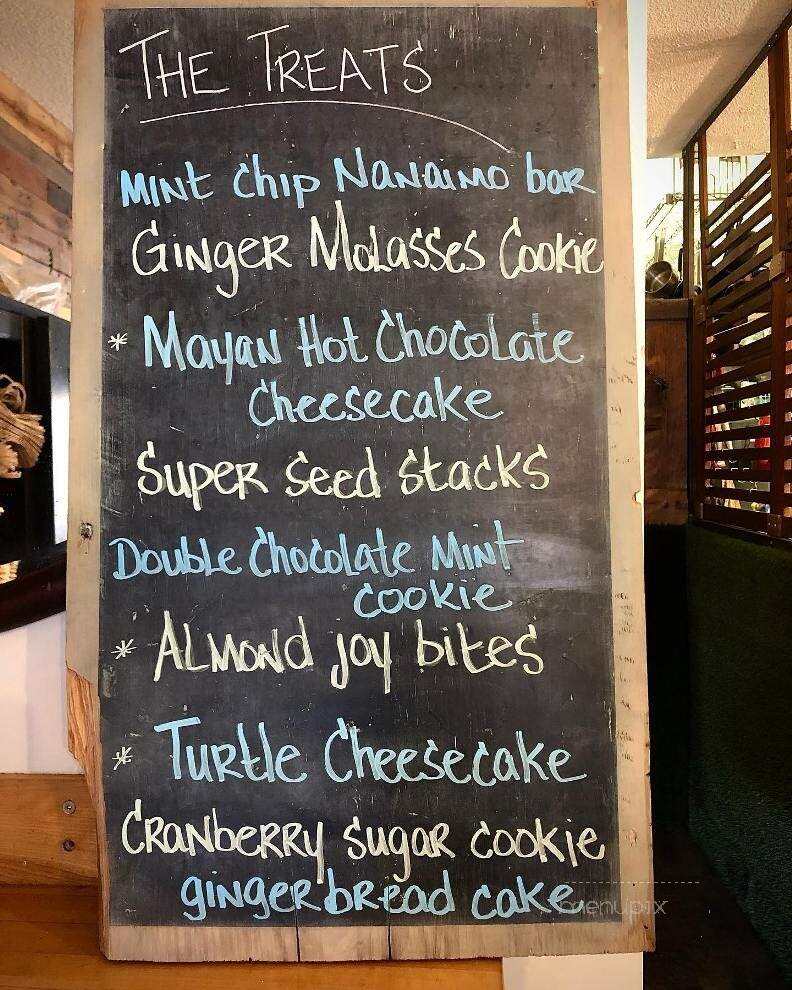 THE TREATS
Mint Chip Nanaimo bar
Ginger Molasses Cookie
* Mayan Hot Chocolate
Cheesecake
Super Seed Stacks
Double Chocolate Mint
cookie
* Almond joy bites
* Turtle Cheesecake
Cranberry sugar cookie
gingerbread cake
menupix